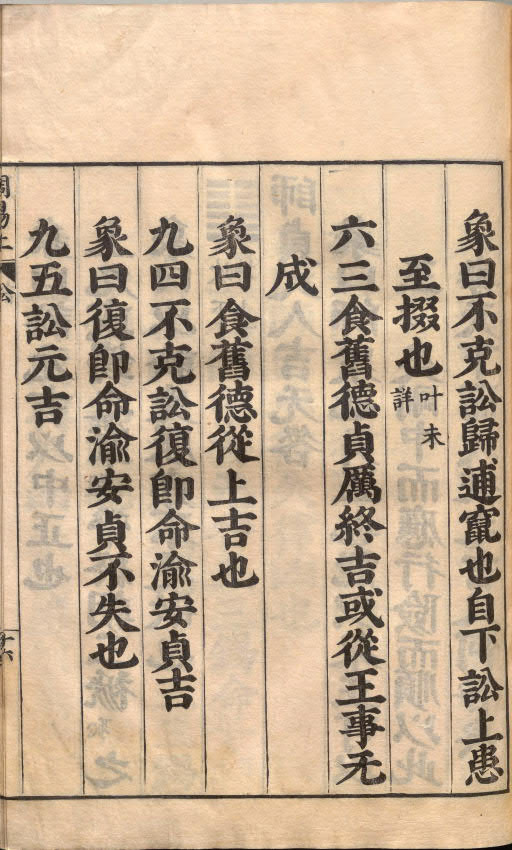 象曰不克訟歸逋竄也自下訟上患
至掇也叶未詳
六三食舊德貞厲終吉或從王事无
成
象曰食舊德從上吉也
九四不克訟復卽命渝安貞吉
象曰復卽命渝安貞不失也
九五訟元吉
周易上
十六